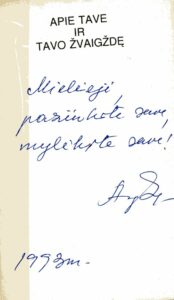 APIE TAVE
IR
TAVO ŽVAIGŽDĘ
Mielieji,
pažinkite save,
mylėkite save!
1993m.